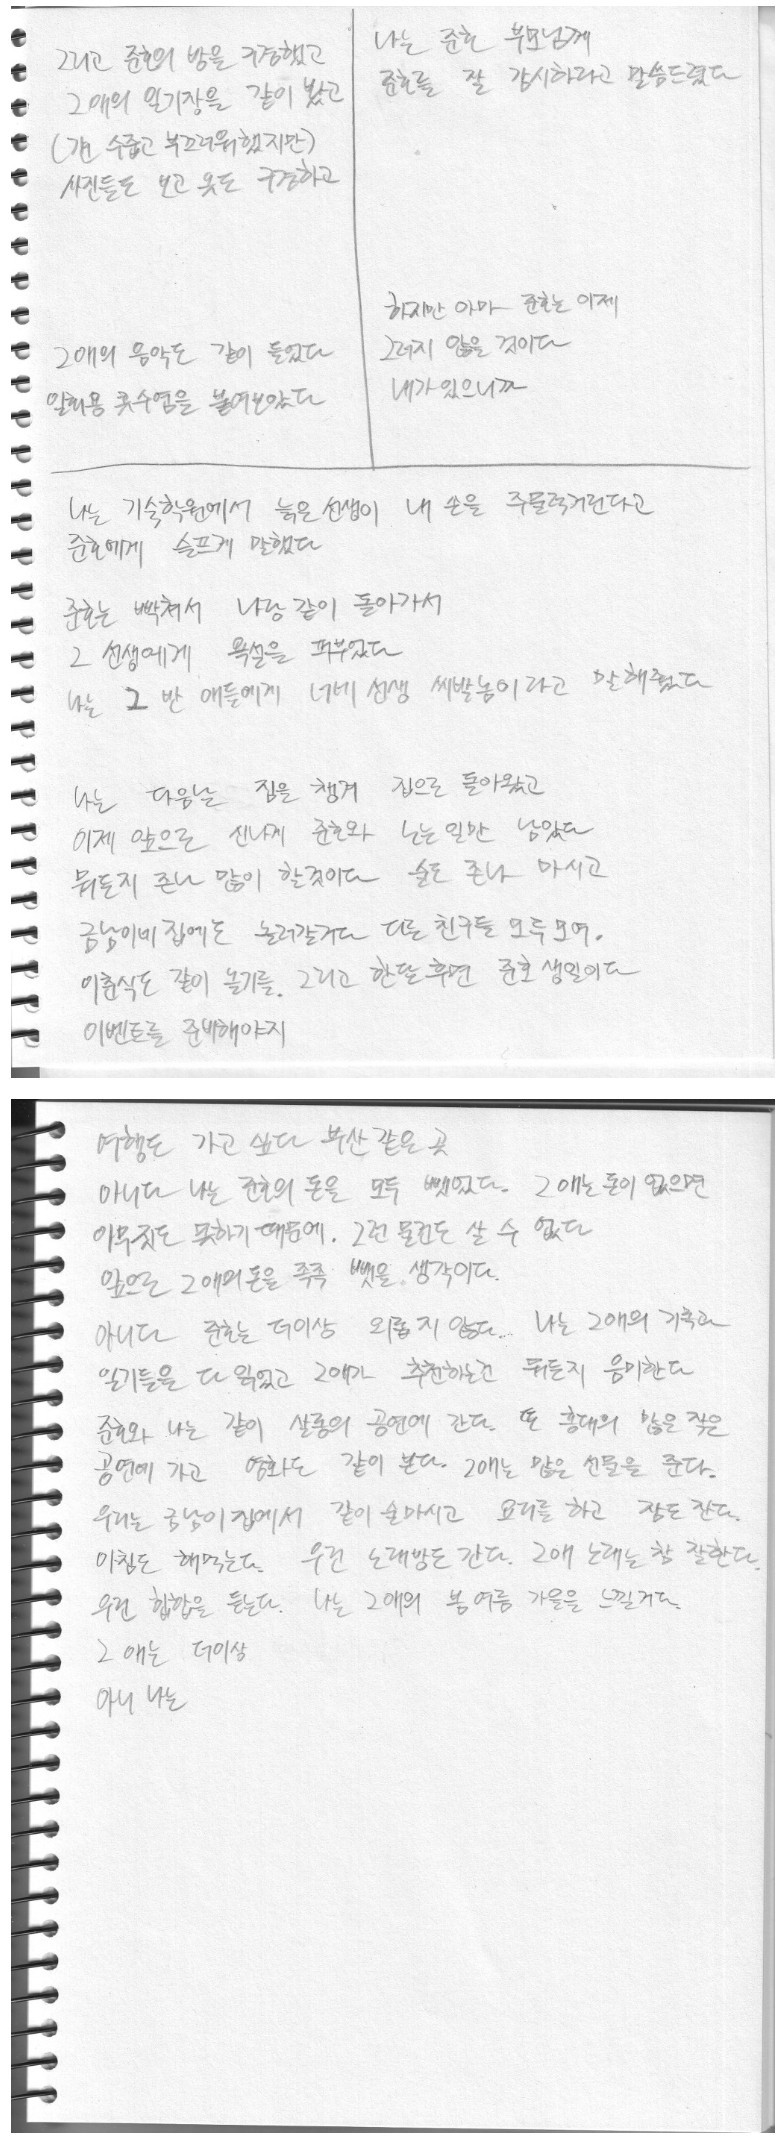 그리고 준호의 방을 구경했고
그애의 일기장을 같이 봤고
(걘 수줍고 부끄러워했지만)
사진들도 보고 옷도 구경하고
그애의 음악도 같이 들었다
일회용 콧수염을 붙여보았다
나는 준호 부모님께
준호를 잘 감시하라고 말씀드렸다
하지만 아마 준호는 이제
그러지 않을 것이다
내가 있으니까
나는 기술학원에서 늙은 선생이 내 손을 주물럭거린다고
준호에게 슬프게 말했다
준호는 빡쳐서 나랑 같이 돌아가서
그 선생에게 욕설을 퍼부었다
나는 그 반 애들에게 너네 선생 씨발놈이라고 말해줬다
나는 다음날 짐을 챙겨 집으로 돌아왔고
이제 앞으로 신나게 준호와 노는 일만 남았다
뭐든지 존나 많이 할것이다 술도 존나 마시고
금남이네 집에도 놀러갈거다 다른 친구들 모두 모여.
이춘식도 같이 놀기를. 그리고 한달 후면 준호 생일이다
이벤트를 준비해야지
여행도 가고 싶다 부산 같은 곳
아니다 나는 준호의 돈을 모두 뺏었다. 그애는 돈이 없으면
아무짓도 못하기 때문에. 그런 물건도 살 수 없다
앞으로 그애의 돈을 족족 뺏을 생각이다.
아니다 준호는 더이상 외롭지 않다... 나는 그애의 기록과
일기들을 다 읽었고 그애가 추천하는건 뭐든지 음미한다
준호와 나는 같이 살롱의 공연에 간다. 또 홍대의 많은 작은
공연에 가고 영화도 같이 본다. 그애는 많은 선물을 준다.
우리는 금남이 집에서 같이 술마시고 요리를 하고 잠도 잔다.
아침도 해먹는다. 우린 노래방도 간다. 그애 노래는 참 잘한다.
우린 힙합을 듣는다. 나는 그애의 봄 여름 가을을 느낄거다.
그 애는 더이상
아니 나는